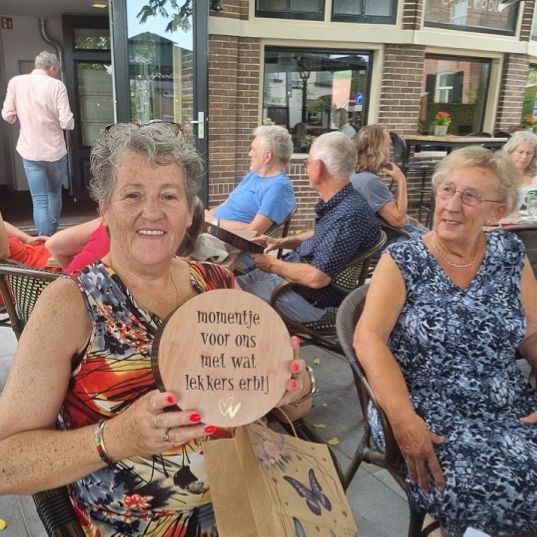 momentje
voor ons
met wat
lekkers erbij